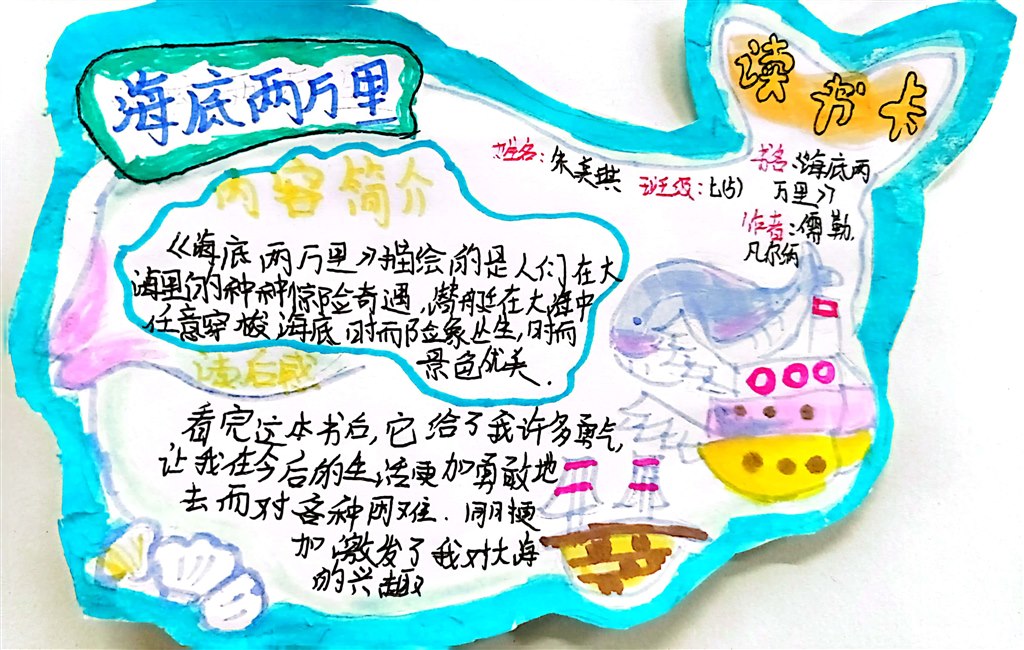 海底两万里
读书卡
姓名:朱美琪
班级:七(5)
书名:海底两
万里》
作者:儒勒.
凡尔纳
内容简介
《海底两万里》描绘的是人们在大
海里的种种惊险奇遇,潜艇在大海中
任意穿梭海底,时而险象丛生,时而
景色优美.
读后感
看完这本书后,它给了我许多勇气,
让我在今后的生活更加勇敢地
去面对各种困难.同时更
加激发了我对大海
的兴趣